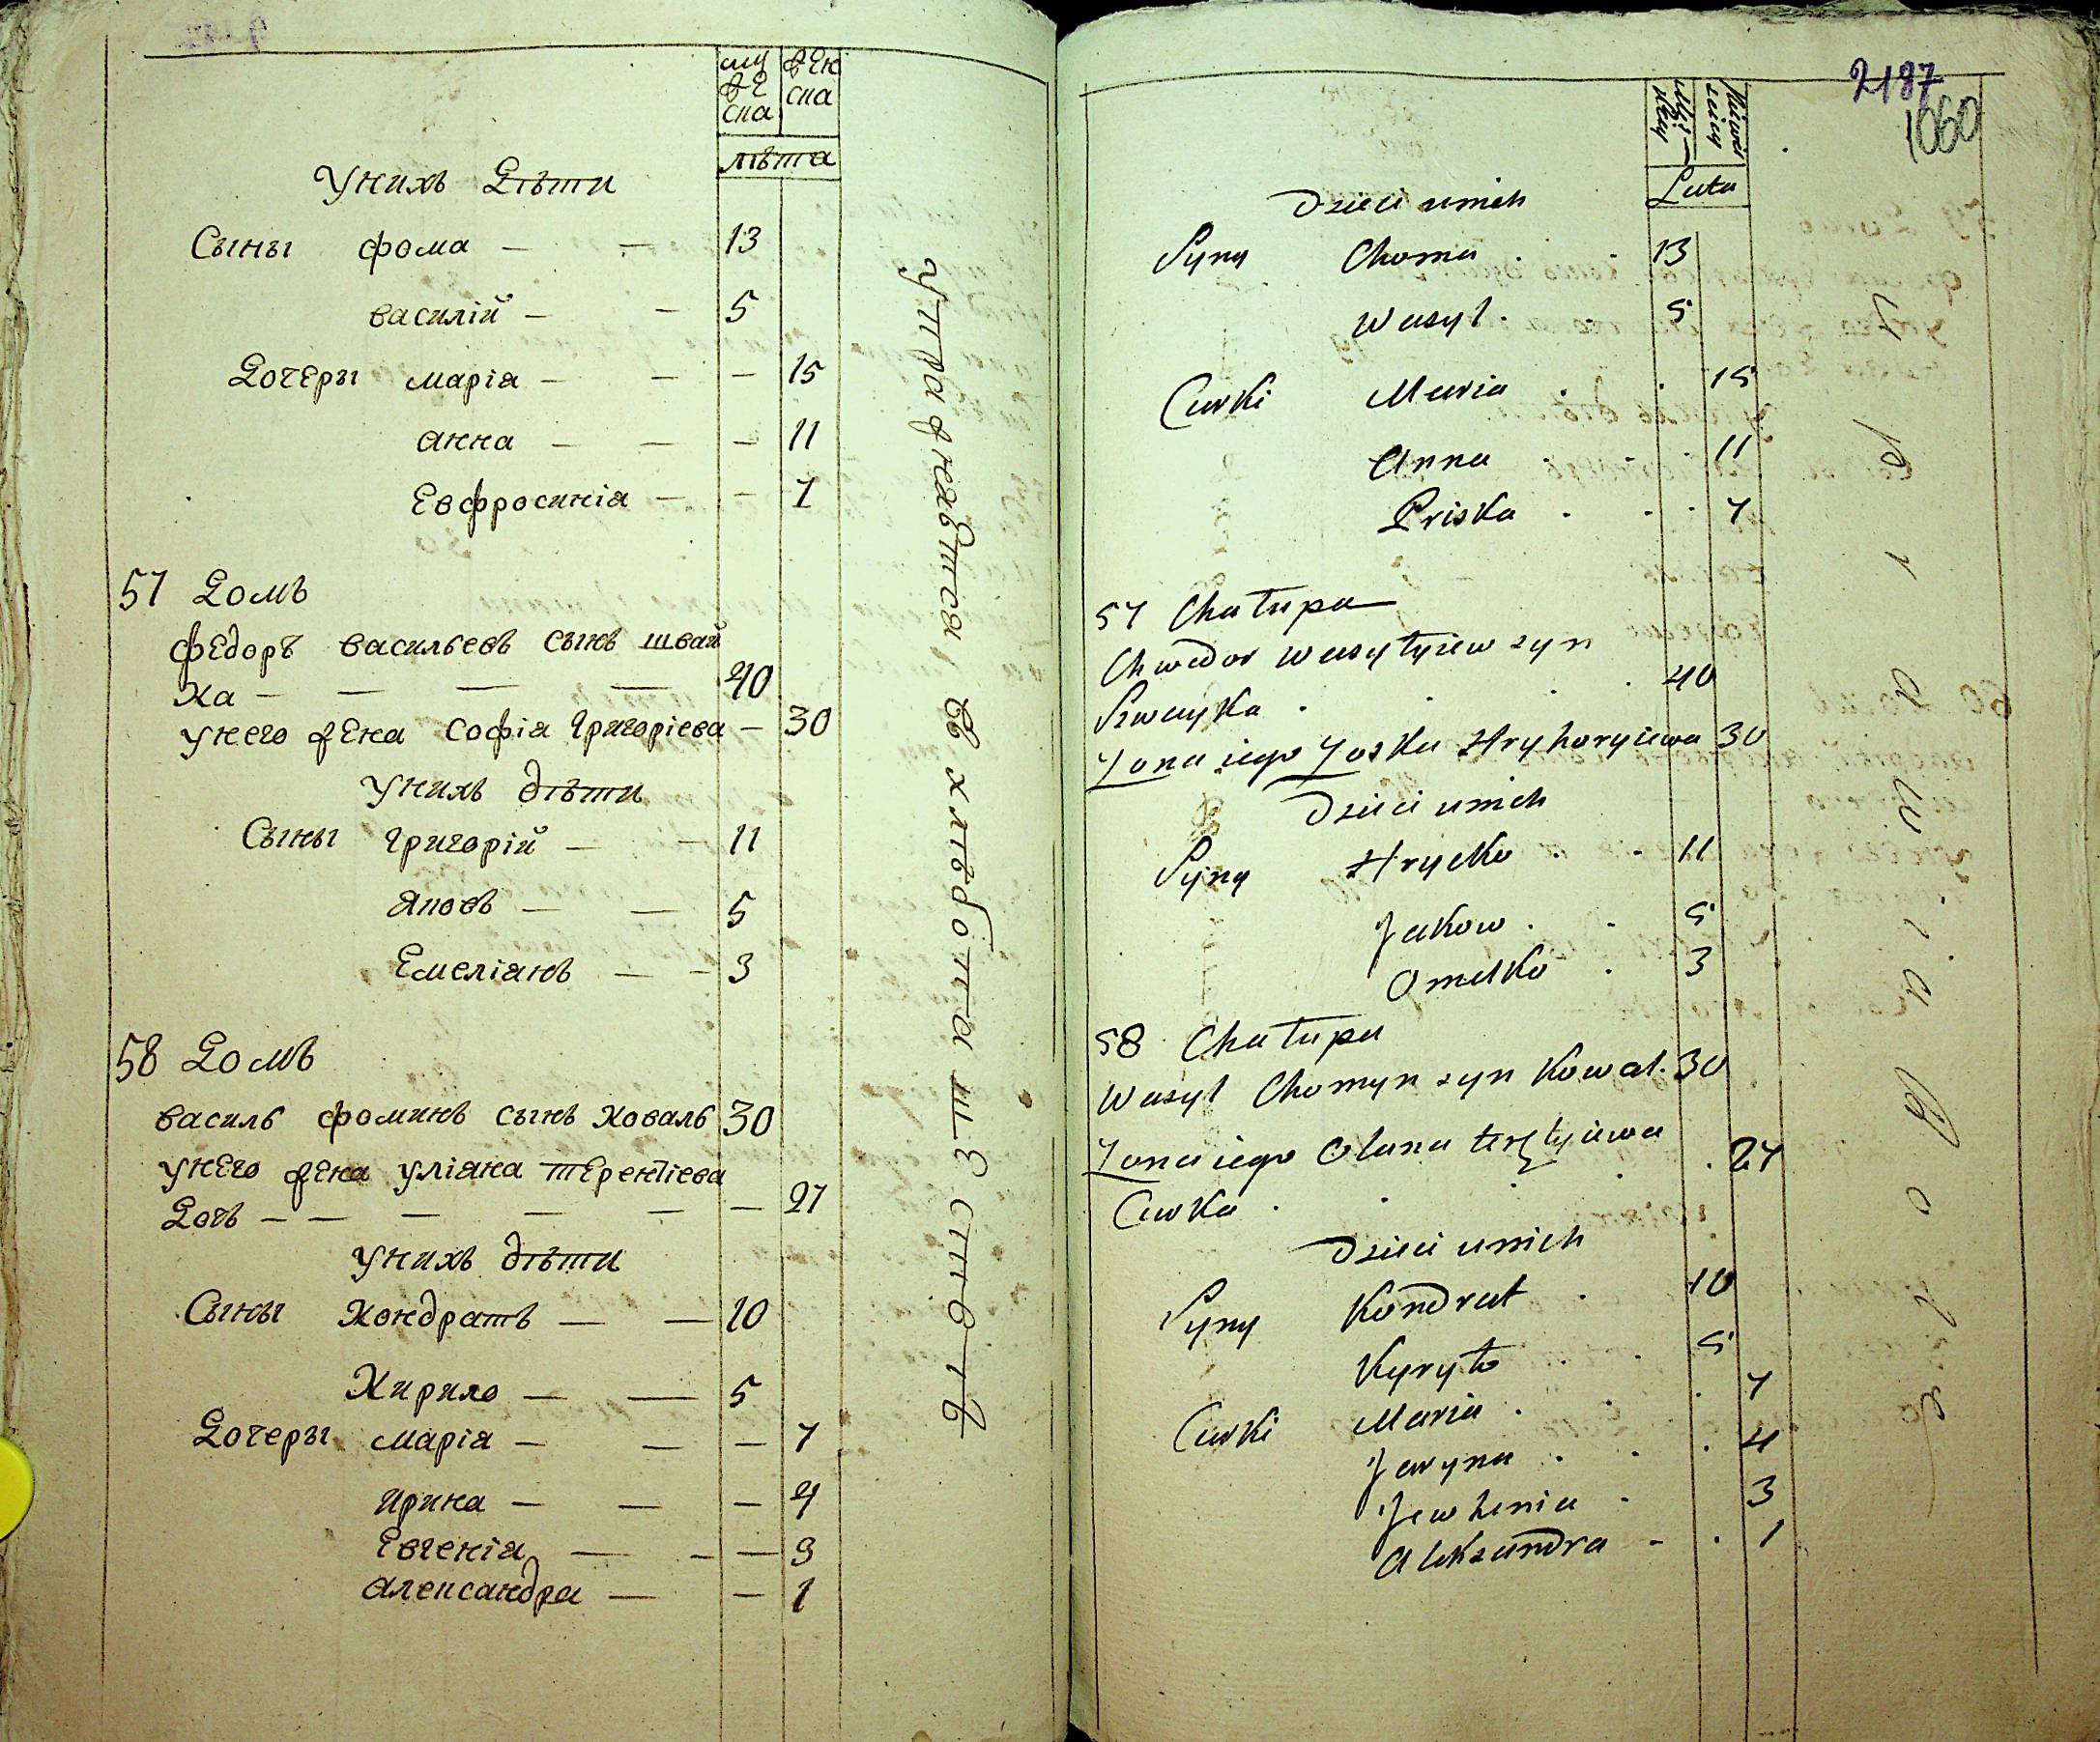 муже
ска
женс
ка
лѣта
У нихъ Дѣти
Сыны Фома — — 13
Василій — — 5
Дочеры Марія — — — 15
Анна — — — 11
Евфросинія — — 7
57 Домъ
Федоръ Васильевъ сынъ Швай
ка — — — — 40
У него жена Софія Григоріева — 30
У нихъ дѣти
Сыны Григорій — — 11
Яковъ — — 5
Емеліанъ — — 3
58 Домъ
Василь Фоминъ сынъ Коваль 30
У него жена Уліана Терентіева
Дочь — — — — — — 27
У нихъ дѣти
Сыны Кондратъ — — 10
Кирило — — 5
Дочеры Марія — — — 7
Ирина — — — 4
Евгенія — — — 3
Александра — — 1
Упражняется в хлѣбопашествѣ
2187
1060
Lata
Dzieci u nich
Syny Choma . . 13
Wasyl . . 5
Curki Maria . . 15
Anna . . . 11
Priska . . . 7
57 Chałupa
Chwedor Wasylyiew syn
Szwayka . . . 40
Żona iego Zoska Hryhoryiewa 30
Dzieci u nich
Syny Hrycko . . 11
Jakow . . 5
Omelko . 3
58 Chałupa
Wasyl Chomyn syn Kowal . 30
Żona iego Olana
Curka . . . . . 27
Dzieci u nich
Syny Kondrat . 10
Kyryło . . 5
Curki Maria . . . 7
Jaryna . . . 4
Jewhenia . 3
Aleksandra . . 1